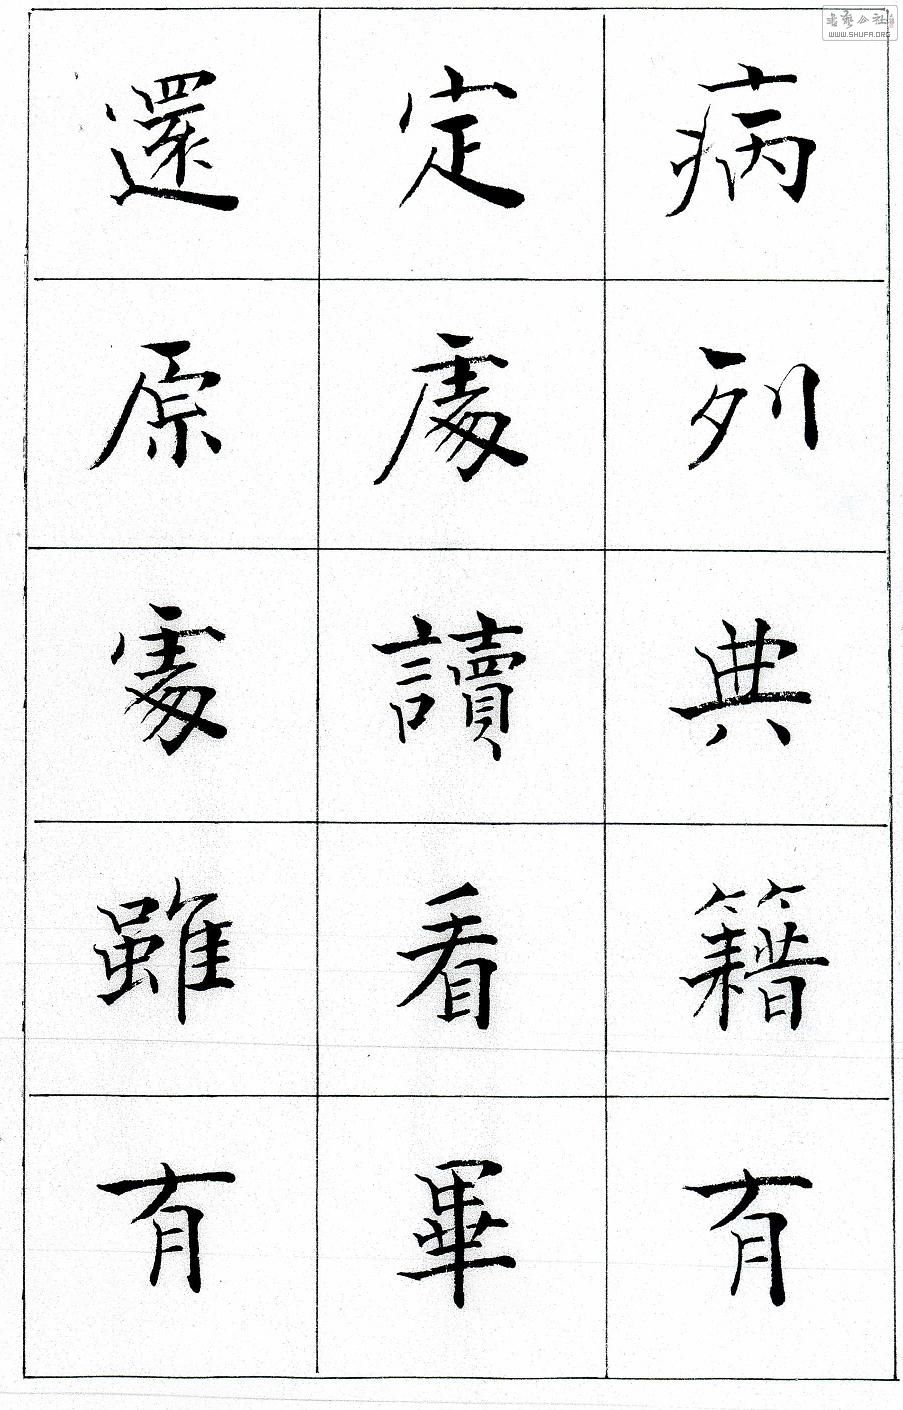 病列典籍有
定處讀看畢
還原處雖有
書藝公社
WWW.SHUFA.ORG